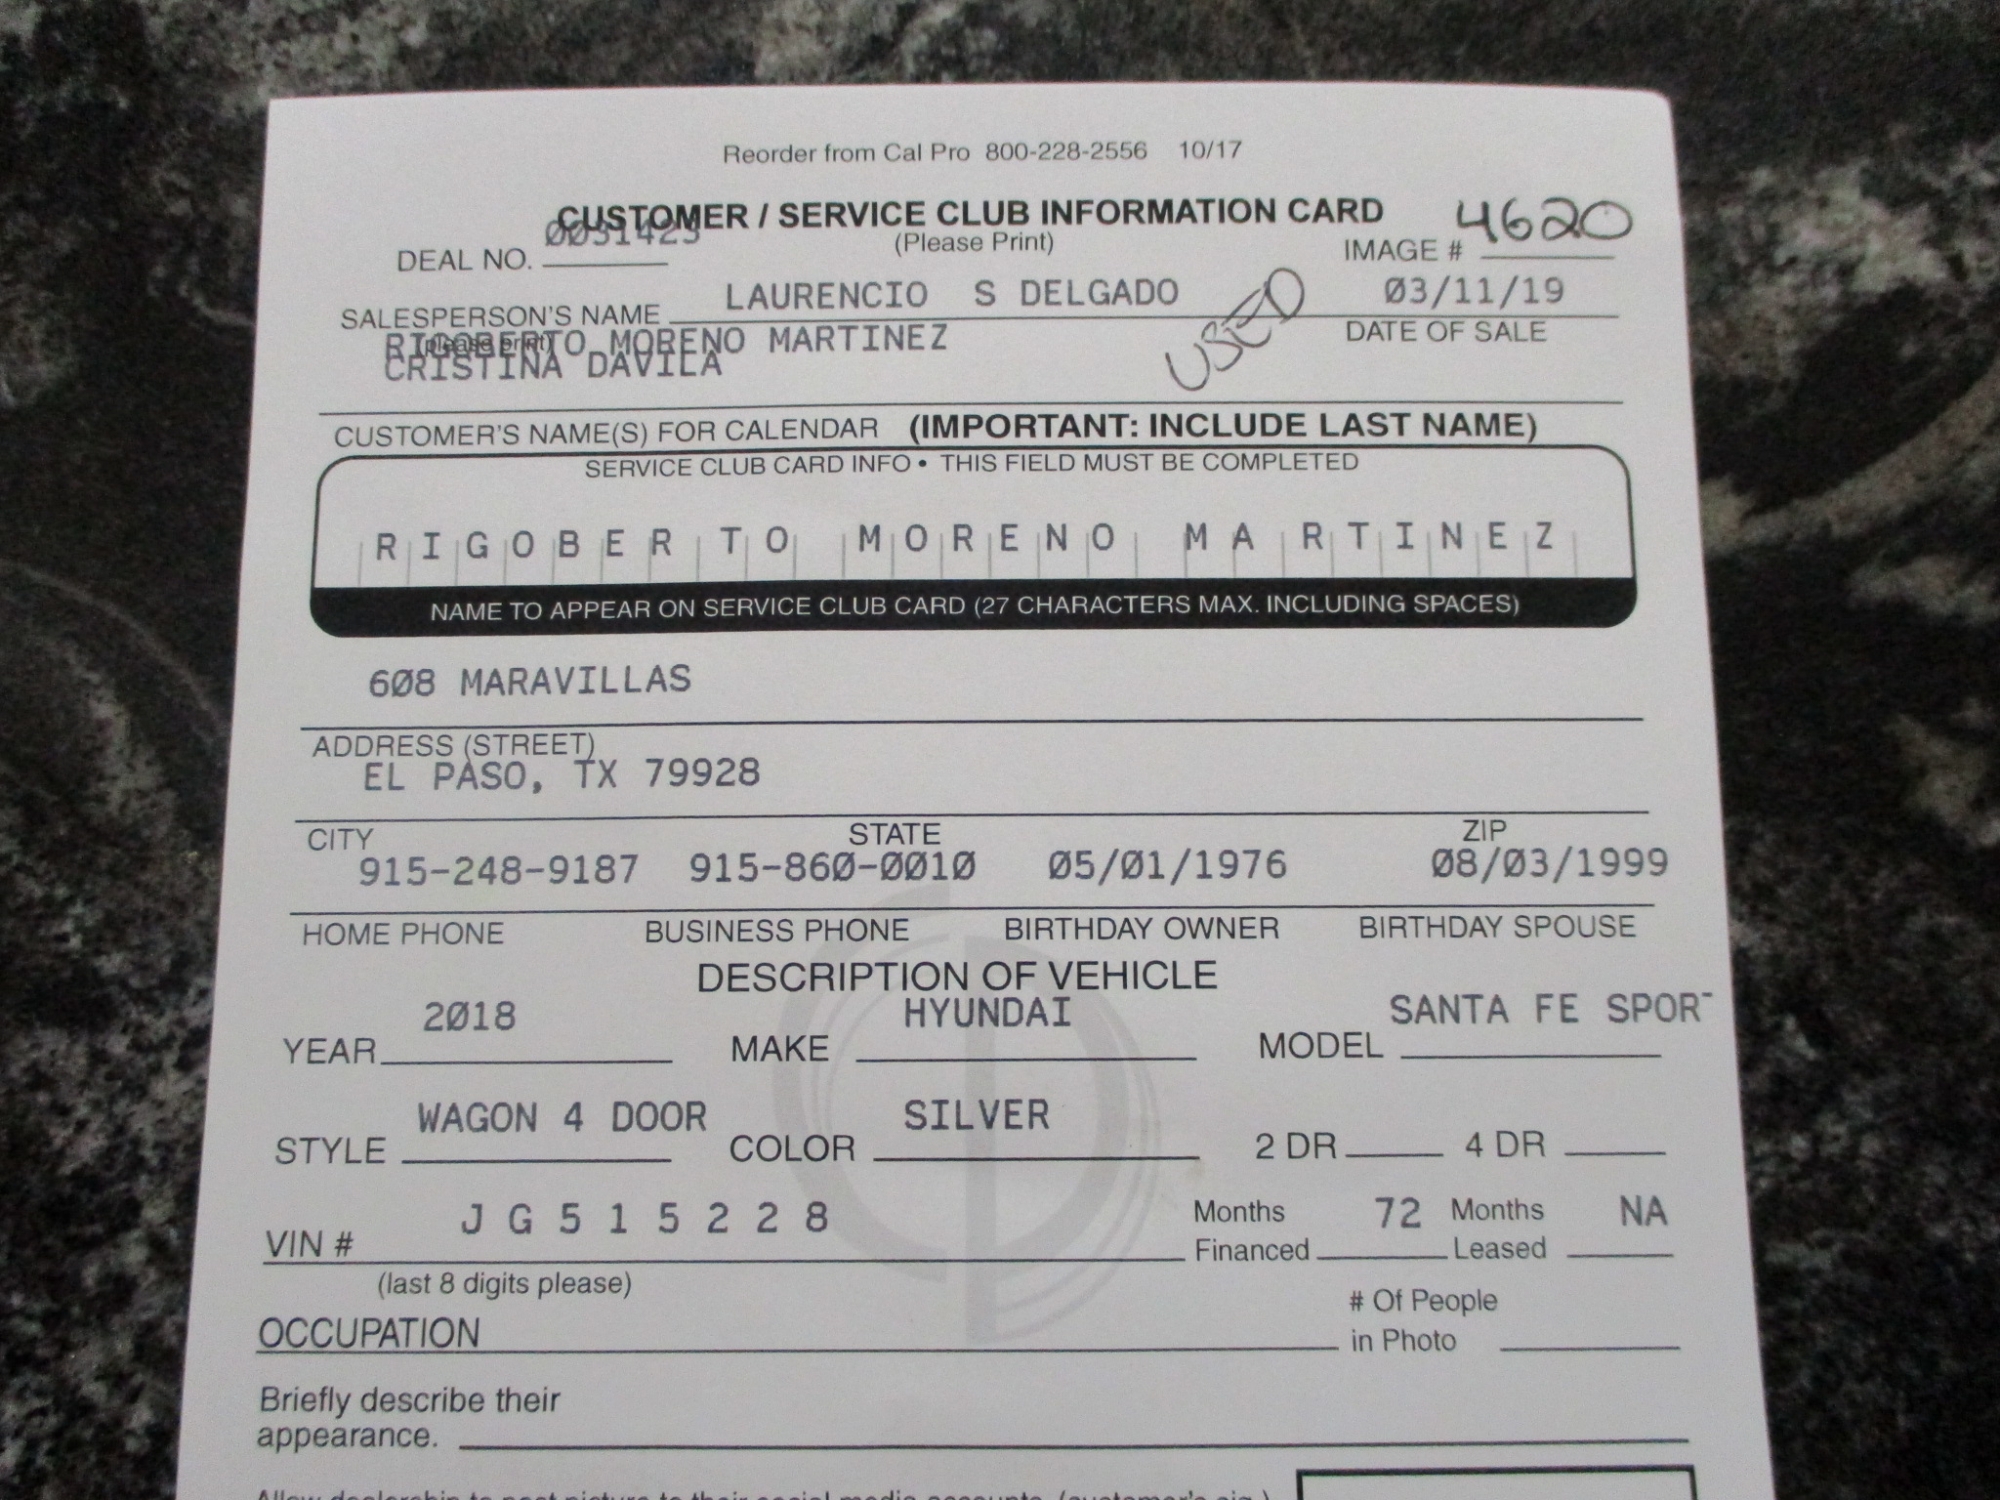 Reorder from Cal Pro 800-228-2556 10/17
CUSTOMER / SERVICE CLUB INFORMATION CARD
(Please Print)
DEAL NO. 0031423
IMAGE # 4620
SALESPERSON'S NAME LAURENCIO S DELGADO
(please print)
USED
03/11/19
DATE OF SALE
RIGOBERTO MORENO MARTINEZ
CRISTINA DAVILA
CUSTOMER'S NAME(S) FOR CALENDAR (IMPORTANT: INCLUDE LAST NAME)
SERVICE CLUB CARD INFO • THIS FIELD MUST BE COMPLETED
RIGOBERTO MORENO MARTINEZ
NAME TO APPEAR ON SERVICE CLUB CARD (27 CHARACTERS MAX. INCLUDING SPACES)
608 MARAVILLAS
ADDRESS (STREET)
EL PASO, TX 79928
CITY STATE ZIP
915-248-9187 915-860-0010 05/01/1976 08/03/1999
HOME PHONE BUSINESS PHONE BIRTHDAY OWNER BIRTHDAY SPOUSE
DESCRIPTION OF VEHICLE
YEAR 2018 MAKE HYUNDAI MODEL SANTA FE SPORT
STYLE WAGON 4 DOOR COLOR SILVER 2 DR 4 DR
VIN # JG515228
(last 8 digits please)
Months Financed 72 Months Leased NA
OCCUPATION
# Of People
in Photo
Briefly describe their
appearance.
Allow dealership to post picture to their social media accounts. (customer's sig.)